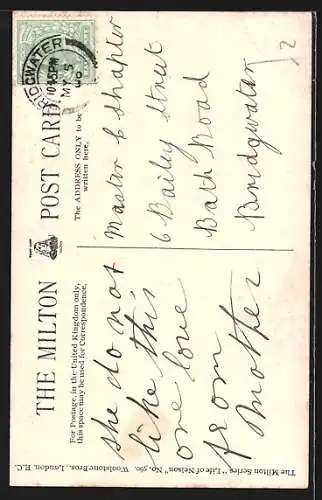 THE MILTON POST CARD.
For Postage, in the United Kingdom only,
this space may be used for Correspondence.
The ADDRESS ONLY to be
written here.
BRIDGWATER
10.45PM
MY 5
2
she do not
like this
one love
from
Mother
Master C Shapter
6 Bailey Street
Bath Road
Bridgwater
The Milton Series "Life of Nelson" No. 560. Woolstone Bros., London, E.C.